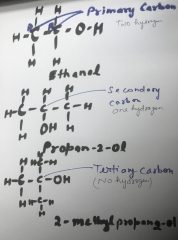 H H Primary Carbon
H-C-C-O-H Two hydrogen
H H
Ethanol
H H H Secondary
H-C-C-C-H carbon
one hydrogen
H OH H
Propan-2-ol
H-C-H
H-C-C-OH Tertiary carbon
(No hydrogen)
H-C-H
H
2-methylpropan-2-ol